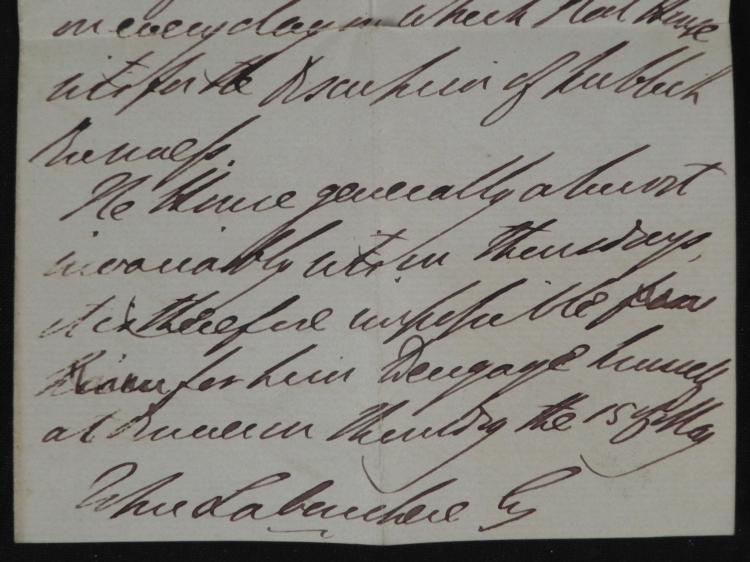 on every day on which that House
sits for the discussion of Publick
Business.
The House generally almost
invariably sits on Thursdays,
it is therefore impossible
for him to engage himself
at Dinner on Thursday the 15 of May
John Labouchere Esq